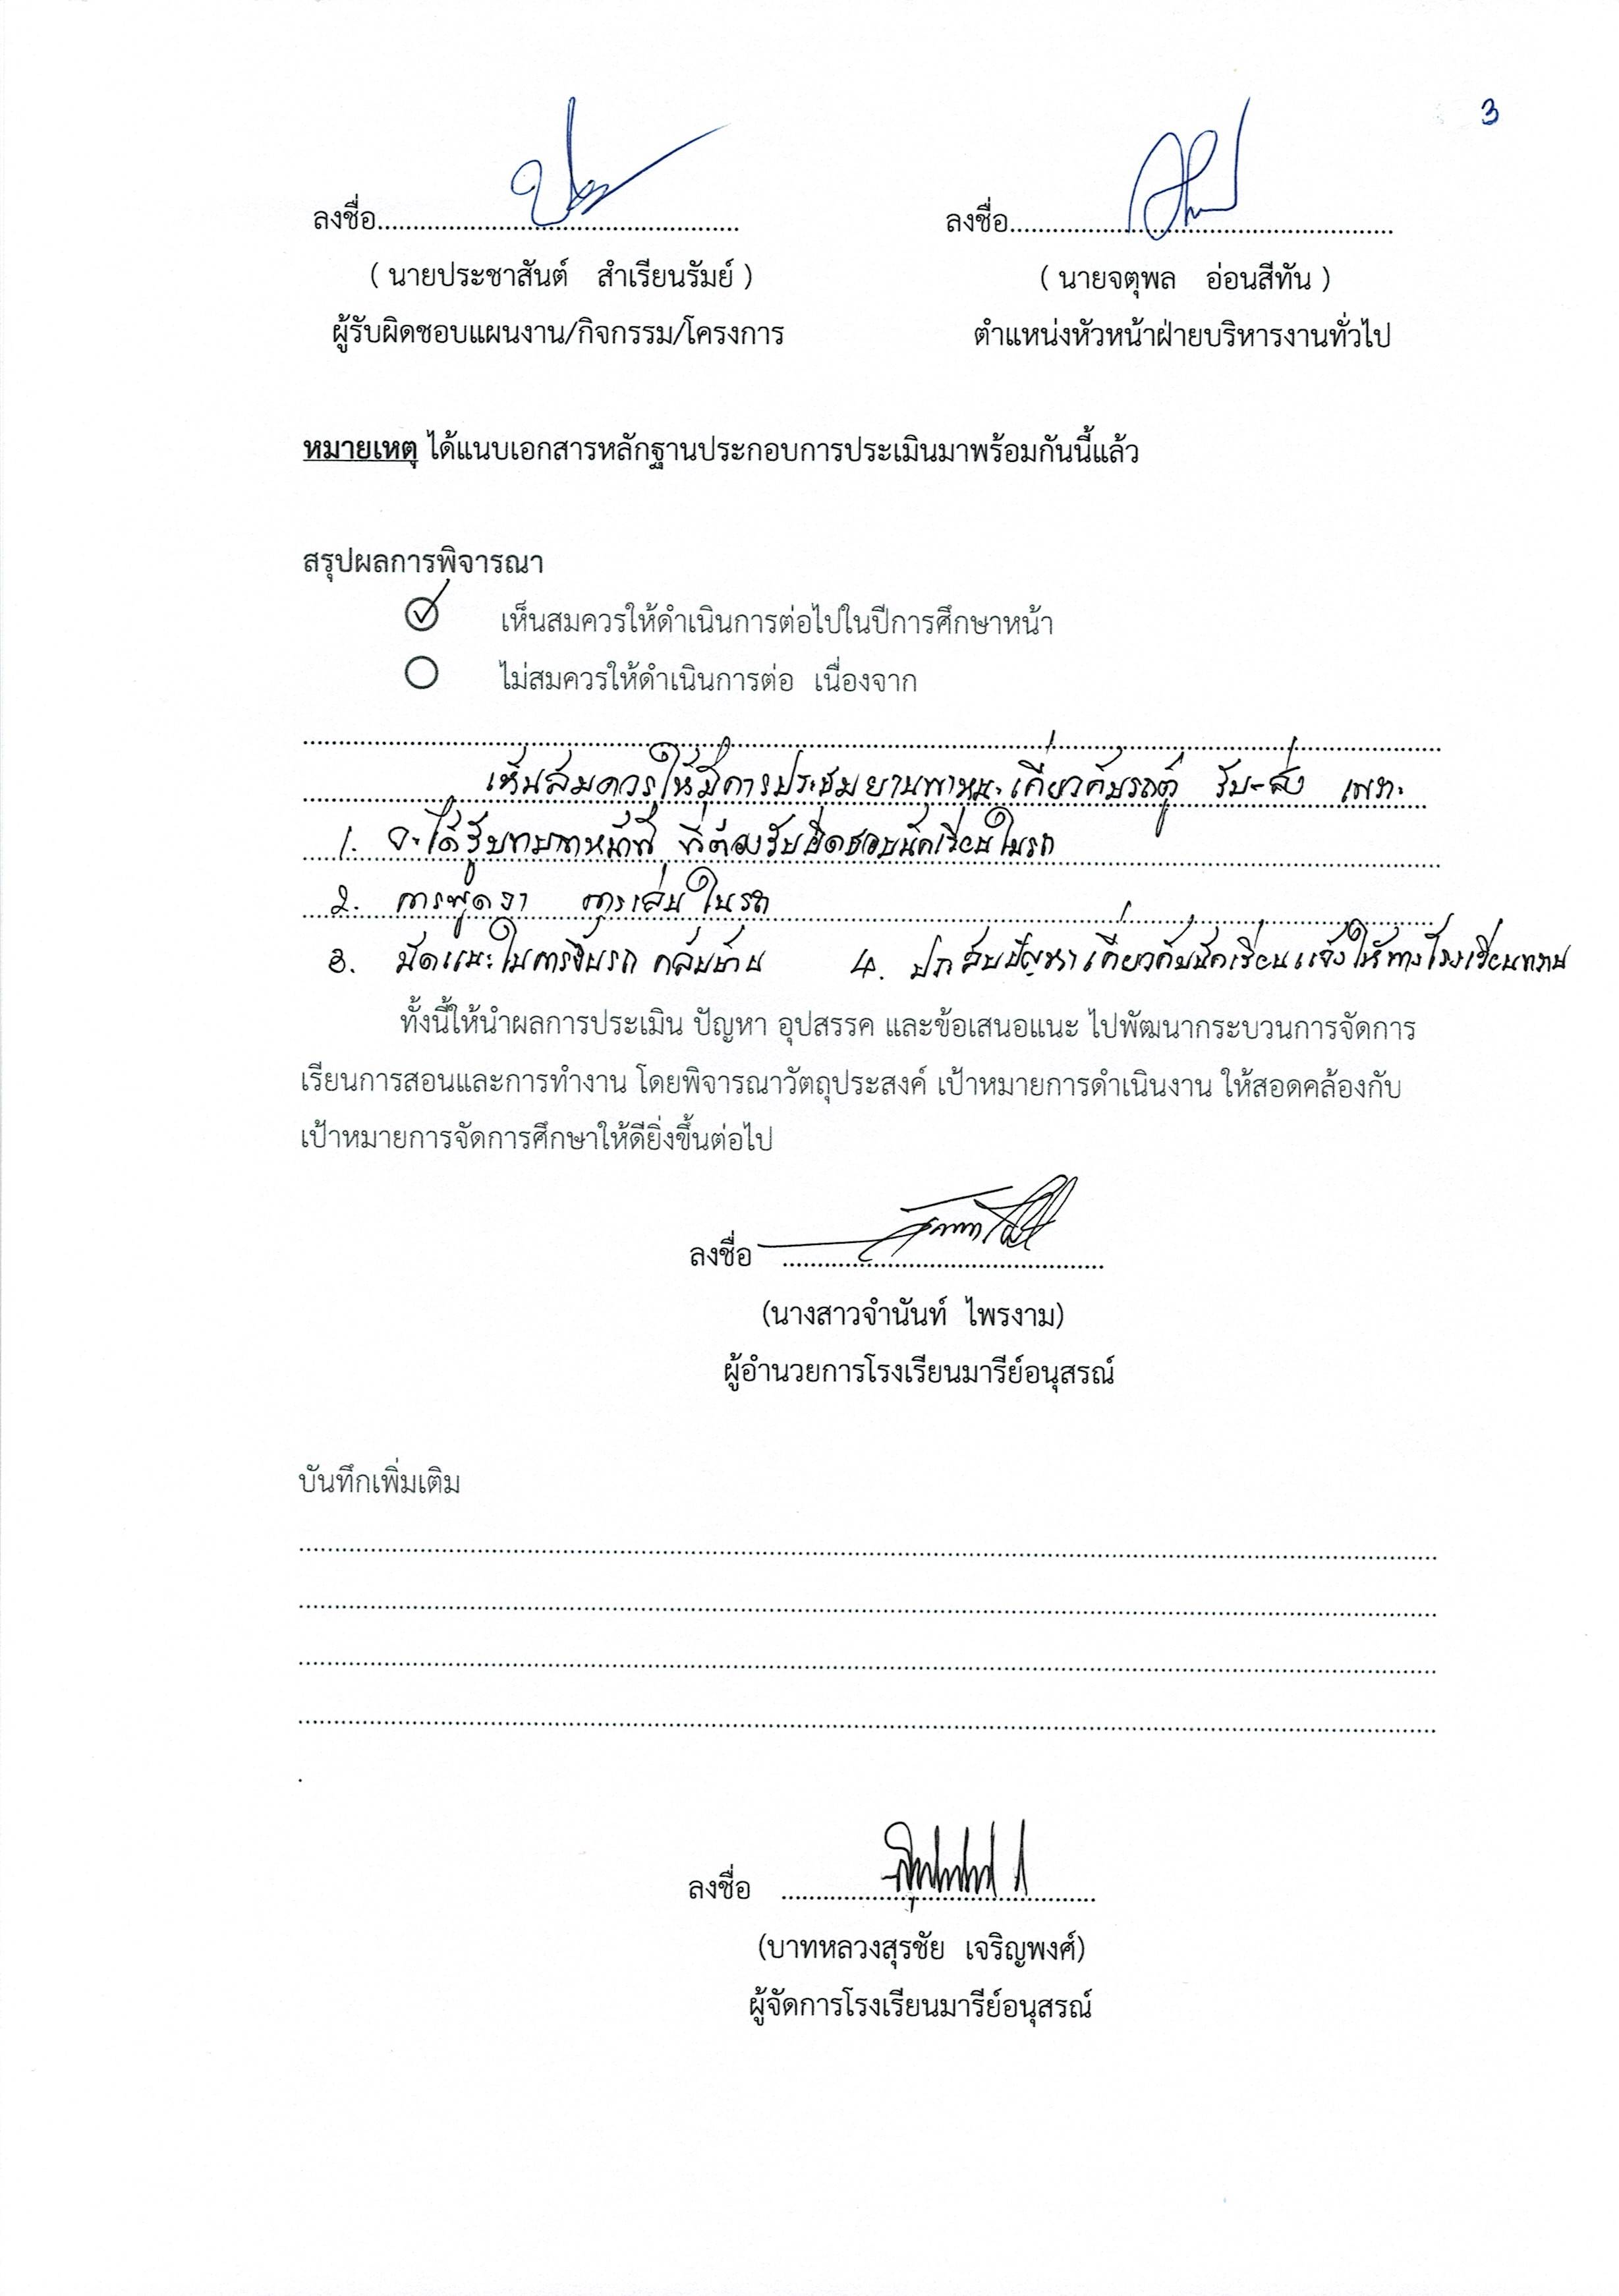 3
ลงชื่อ.................................................... ลงชื่อ.......................................................
( นายประชาสันต์ สำเรียนรัมย์ ) ( นายจตุพล อ่อนสีทัน )
ผู้รับผิดชอบแผนงาน/กิจกรรม/โครงการ ตำแหน่งหัวหน้าฝ่ายบริหารงานทั่วไป
หมายเหตุ ได้แนบเอกสารหลักฐานประกอบการประเมินมาพร้อมกันนี้แล้ว
สรุปผลการพิจารณา
เห็นสมควรให้ดำเนินการต่อไปในปีการศึกษาหน้า
ไม่สมควรให้ดำเนินการต่อ เนื่องจาก
เห็นสมควรให้มีการประชุมยานพาหนะเกี่ยวกับรถตู้ รับ-ส่ง เพราะ
1. จะได้รู้บทบาทหน้าที่ ที่ต้องรับผิดชอบนักเรียนในรถ
2. การพูดจา การเล่นในรถ
3. ในการขับรถ กลับบ้าน 4. ปัญหาเกี่ยวกับนักเรียนแจ้งให้ทางโรงเรียนทราบ
ทั้งนี้ให้นำผลการประเมิน ปัญหา อุปสรรค และข้อเสนอแนะ ไปพัฒนากระบวนการจัดการ
เรียนการสอนและการทำงาน โดยพิจารณาวัตถุประสงค์ เป้าหมายการดำเนินงาน ให้สอดคล้องกับ
เป้าหมายการจัดการศึกษาให้ดียิ่งขึ้นต่อไป
ลงชื่อ ..............................................
(นางสาวจำนันท์ ไพรงาม)
ผู้อำนวยการโรงเรียนมารีย์อนุสรณ์
บันทึกเพิ่มเติม
ลงชื่อ .............................................
(บาทหลวงสุรชัย เจริญพงศ์)
ผู้จัดการโรงเรียนมารีย์อนุสรณ์